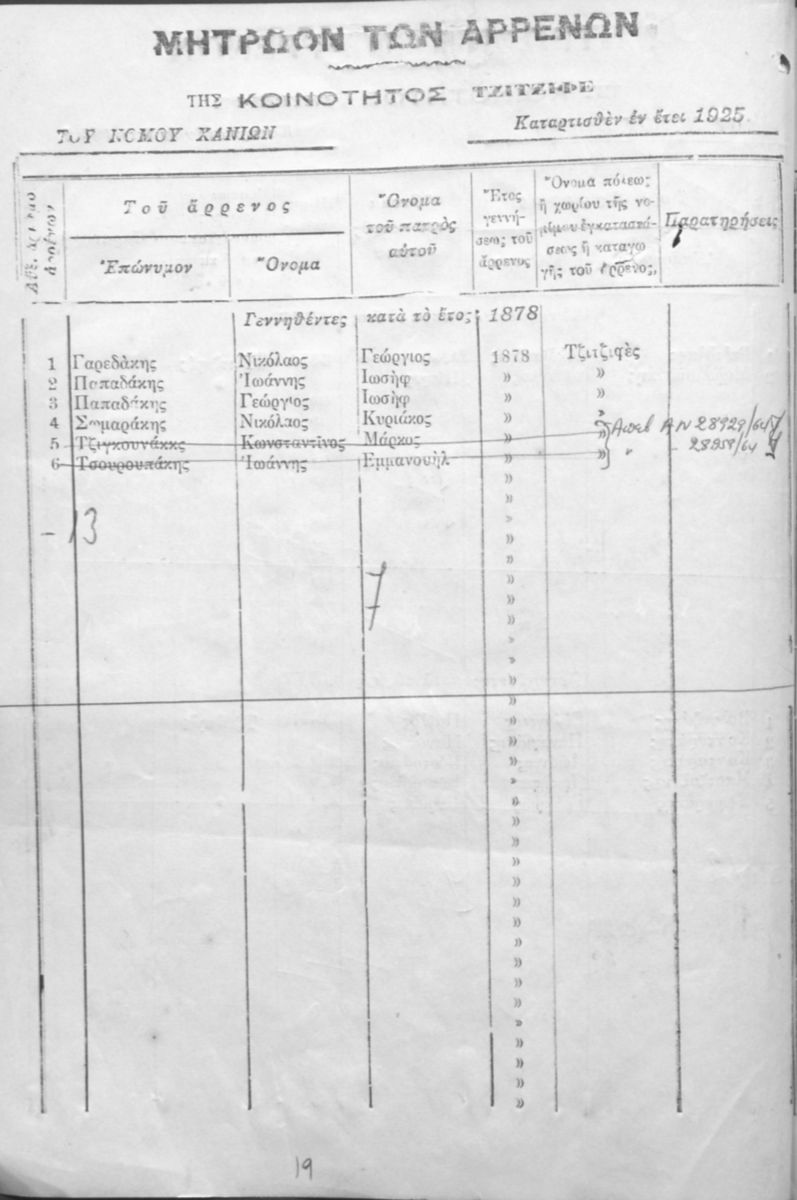 ΜΗΤΡΩΟΝ ΤΩΝ ΑΡΡΕΝΩΝ
ΤΗΣ ΚΟΙΝΟΤΗΤΟΣ ΤΖΙΤΖΙΦΕ
ΤΟΥ ΝΟΜΟΥ ΧΑΝΙΩΝ
Καταρτισθὲν ἐν ἔτει 1925.
Τοῦ ἄρρενος
Ἐπώνυμον
Ὄνομα
Ὄνομα
τοῦ πατρὸς
αὐτοῦ
Ἔτος
γεννή-
σεως τοῦ
ἄρρενος
Ὄνομα πόλεως
ἢ χωρίου τῆς νο-
μίμου ἐγκαταστά-
σεως ἢ καταγω
γῆς τοῦ ἄρρενος,
Παρατηρήσεις
Γεννηθέντες κατὰ τὸ ἔτος 1878
1 Γαρεδάκης Νικόλαος Γεώργιος 1878 Τζιτζιφὲς
2 Παπαδάκης Ἰωάννης Ιωσὴφ » »
3 Παπαδάκης Γεώργιος Ιωσὴφ » »
4 Σωμαράκης Νικόλαος Κυριάκος » »
5 Τζιγκουνάκκς Κωνσταντῖνος Μάρκος » » ΑΝ 28929/64
6 Τσουρουπάκης Ἰωάννης Εμμανουὴλ » » " - 28958/64
»
»
»
»
- 13
»
»
7
»
»
»
»
»
»
»
»
»
»
»
»
»
»
»
»
»
»
»
»
»
»
»
»
19